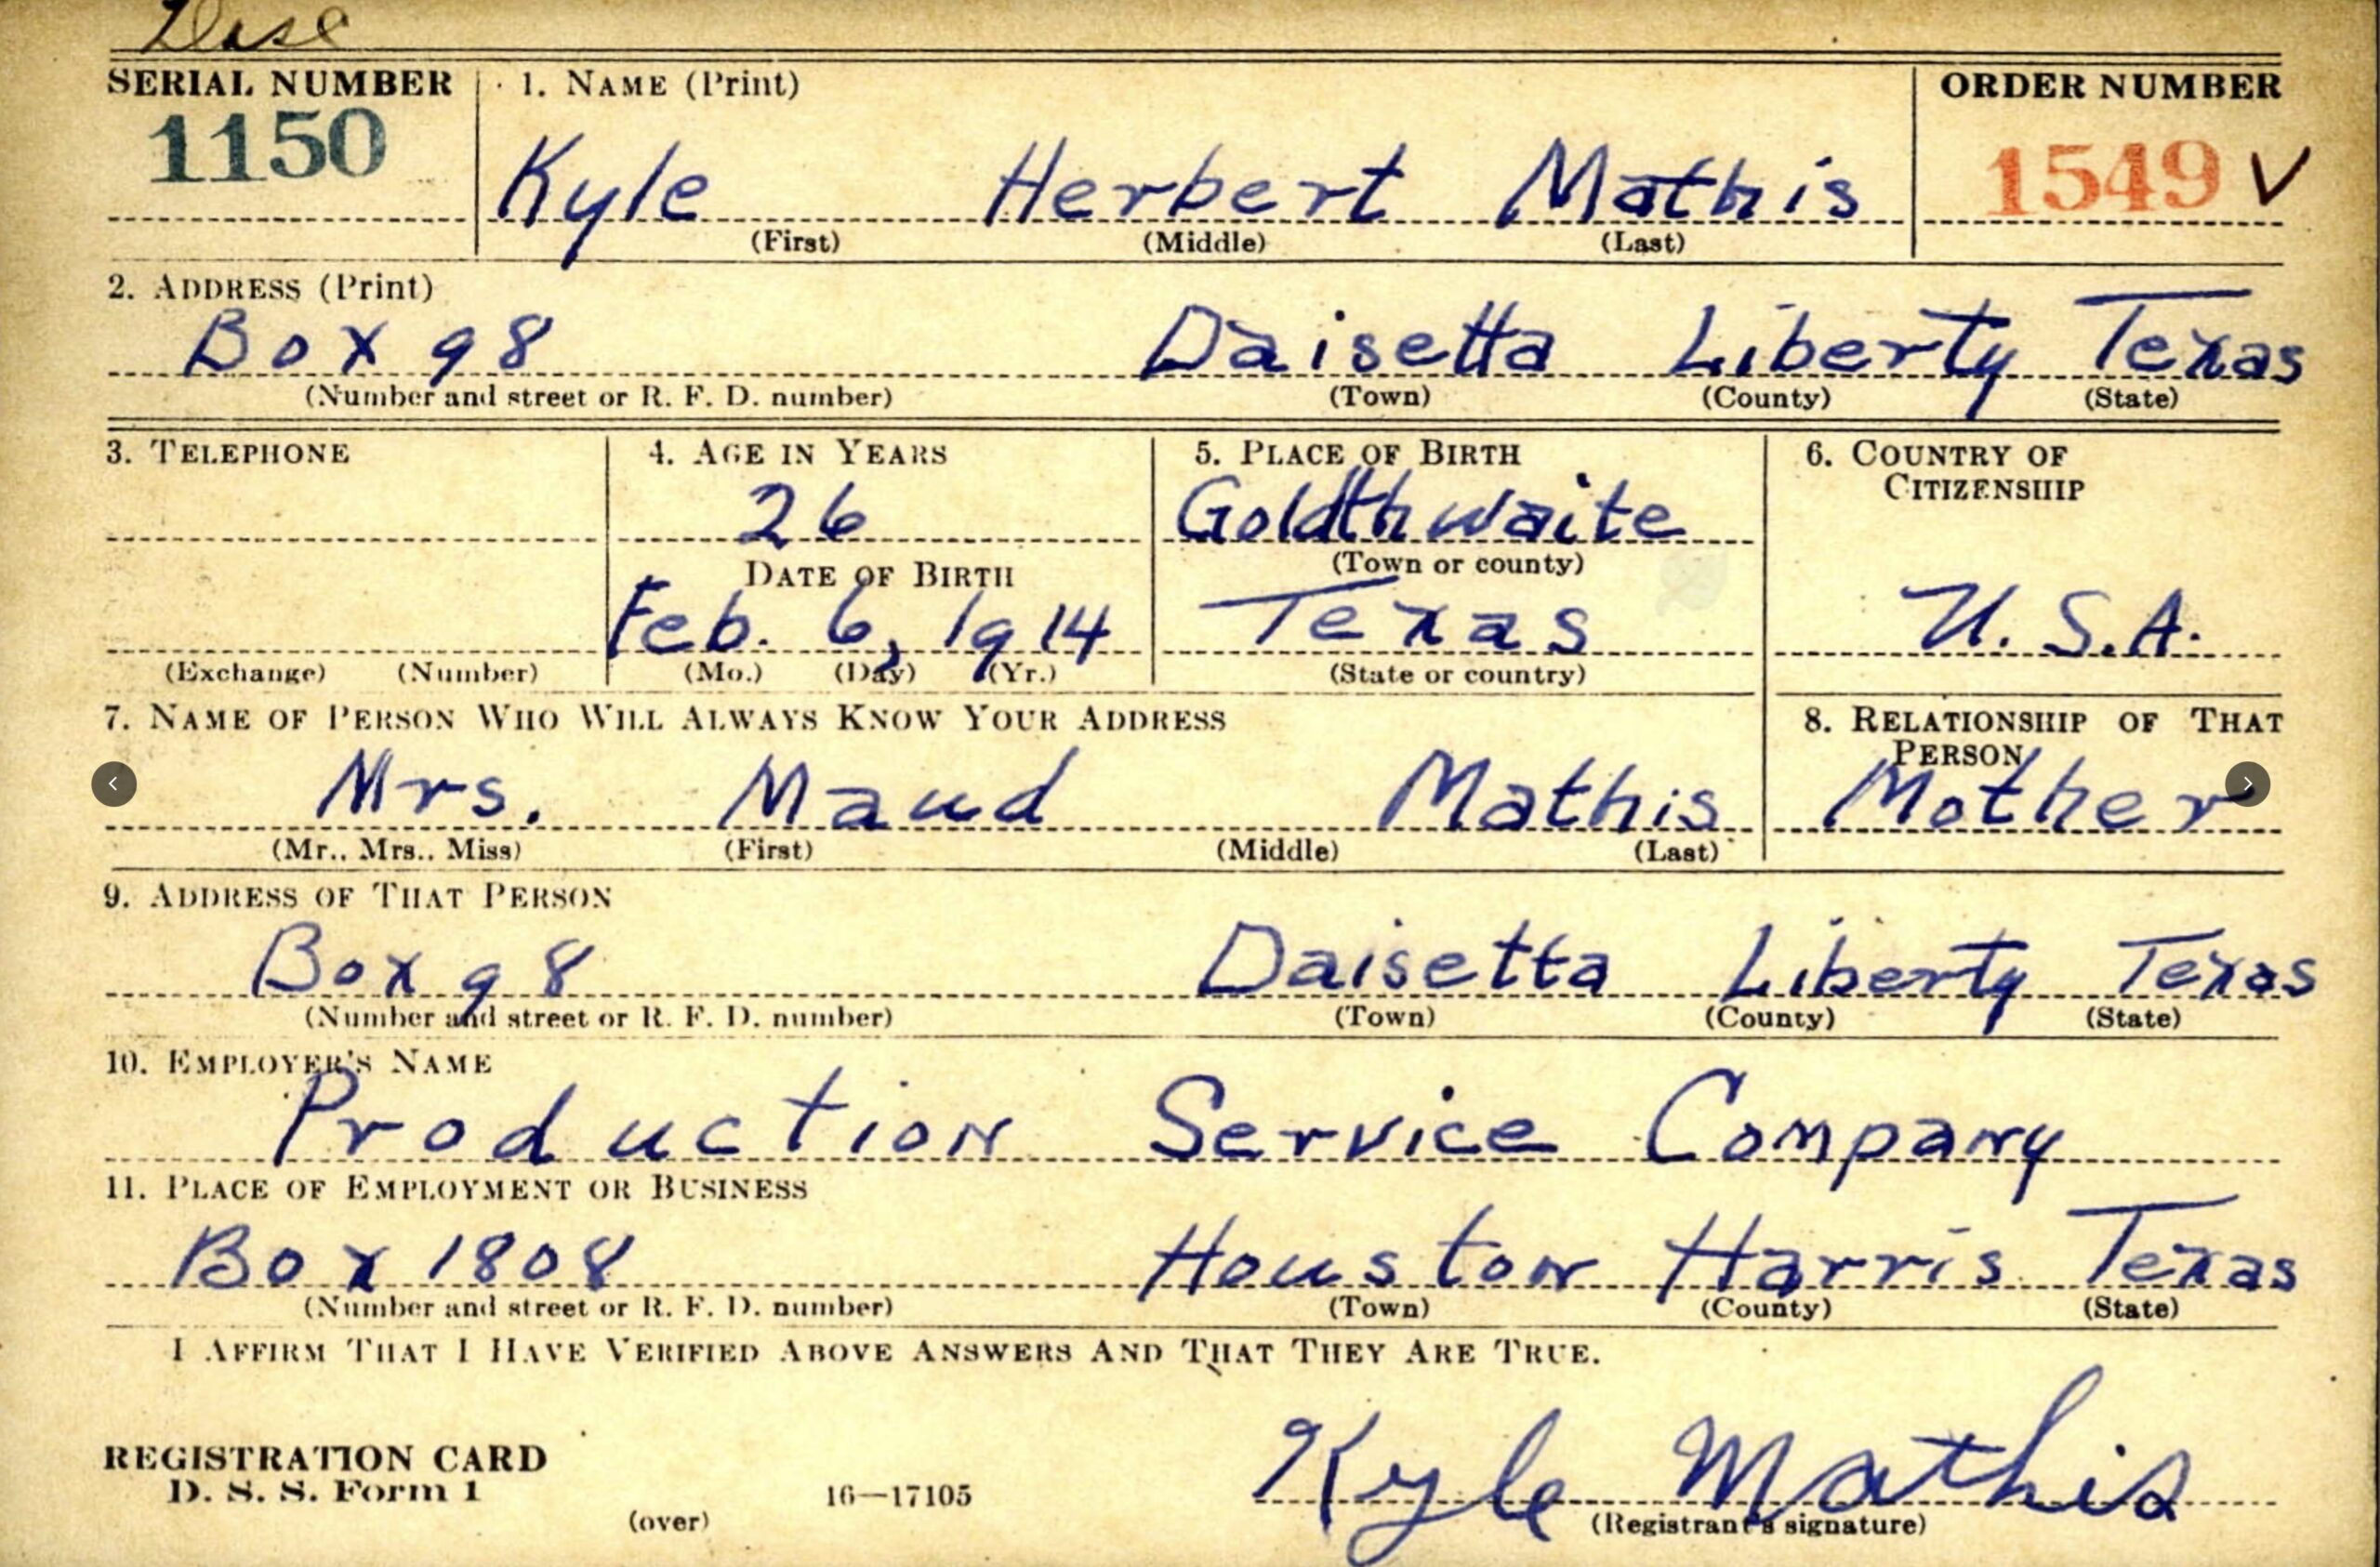 SERIAL NUMBER 1. NAME (Print) ORDER NUMBER
1150 Kyle Herbert Mathis 1549 V
(First) (Middle) (Last)
2. ADDRESS (Print)
Box 98 Daisetta Liberty Texas
(Number and street or R. F. D. number) (Town) (County) (State)
3. TELEPHONE 4. AGE IN YEARS 5. PLACE OF BIRTH 6. COUNTRY OF
CITIZENSHIP
26 Goldthwaite
DATE OF BIRTH (Town or county)
Feb. 6, 1914 Texas U.S.A.
(Exchange) (Number) (Mo.) (Day) (Yr.) (State or country)
7. NAME OF PERSON WHO WILL ALWAYS KNOW YOUR ADDRESS 8. RELATIONSHIP OF THAT
PERSON
Mrs. Maud Mathis Mother
(Mr., Mrs., Miss) (First) (Middle) (Last)
9. ADDRESS OF THAT PERSON
Box 98 Daisetta Liberty Texas
(Number and street or R. F. D. number) (Town) (County) (State)
10. EMPLOYER'S NAME
Production Service Company
11. PLACE OF EMPLOYMENT OR BUSINESS
Box 1808 Houston Harris Texas
(Number and street or R. F. D. number) (Town) (County) (State)
I AFFIRM THAT I HAVE VERIFIED ABOVE ANSWERS AND THAT THEY ARE TRUE.
Kyle Mathis
REGISTRATION CARD
D. S. S. Form 1 16—17105
(over) (Registrant's signature)